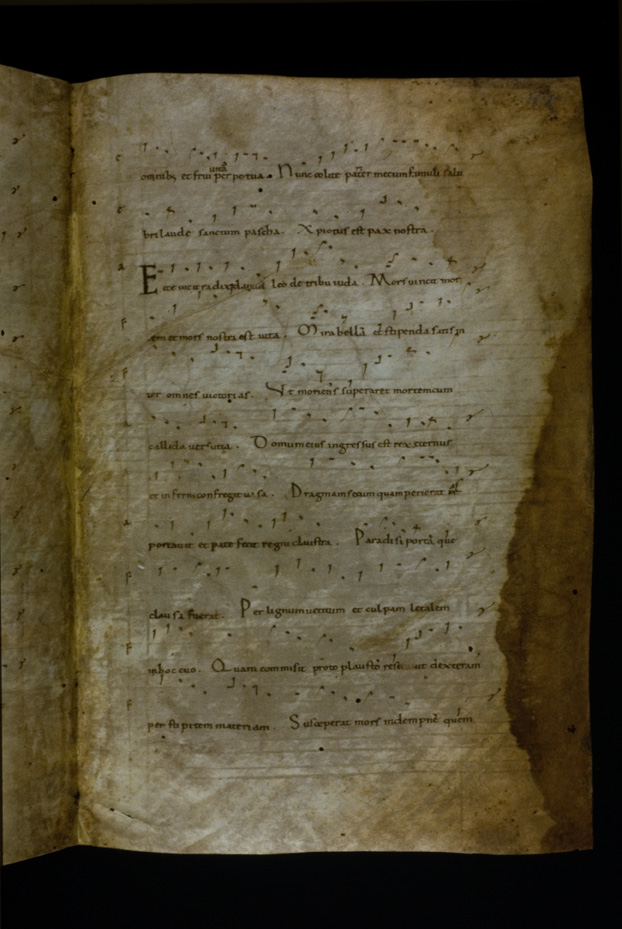 omnib; et frui per petua. Nunc celite pater mecum simuli salu
vita
bri laude sanctum pascha. X pictus est pax nostra.
Ecce vicit radix dauid leo de tribu iuda. Mors uincit mor
em et mors nostra est uita. Mira bella et stipenda satis in
ter omnes uictorias. Vt moriens superaret mortem cum
callida uersutia. Domum eius ingressus est rex xternus
et inferni confregit ua sa. Dragmam secum quam perierat
portauit et pate fecit regni claustra. Paradisi porta que
clau sa fuerat. Per lignum uetitum et culpam letalem
in hoc euo. Quam commisit proto plausto ut dexteram
per stipitem materiam. Susceperat mors indempne quem